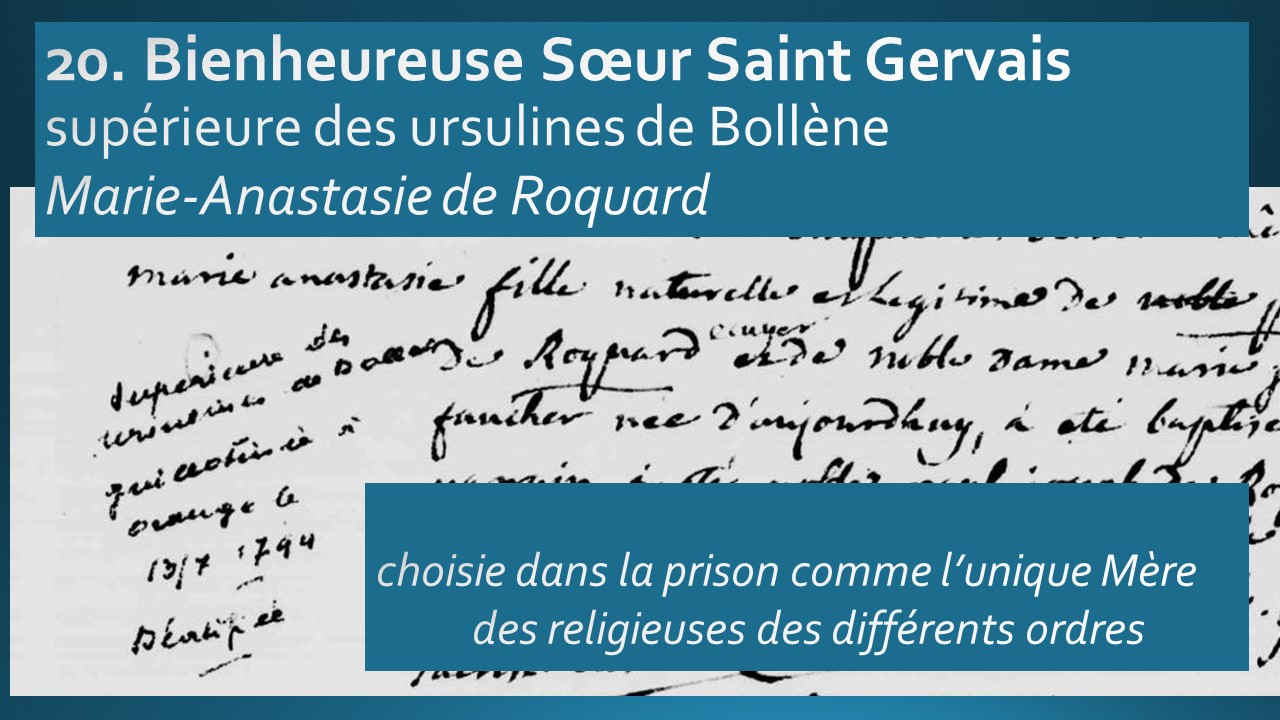 20. Bienheureuse Sœur Saint Gervais
supérieure des ursulines de Bollène
Marie-Anastasie de Roquard
marie anastasie fille naturelle et legitime de noble
De Roquard ecuyer et de noble dame marie
faucher née d'aujourdhuy, à eté baptisé
Supérieure des
ursulines de Bollène
guillotinée à
orange le
13/7 1794
Béatifiée
choisie dans la prison comme l’unique Mère
des religieuses des différents ordres